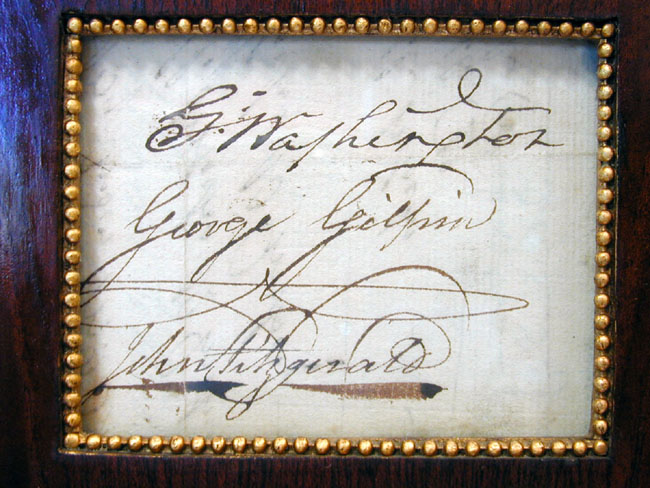 G: Washington
George Gilpin
John Fitzgerald